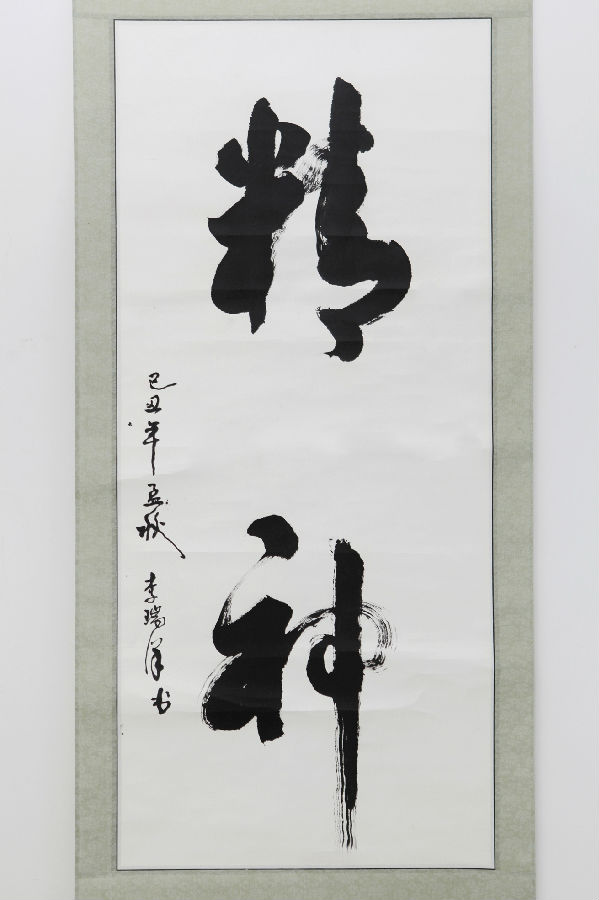 精神
己丑年孟秋 李瑞洋书